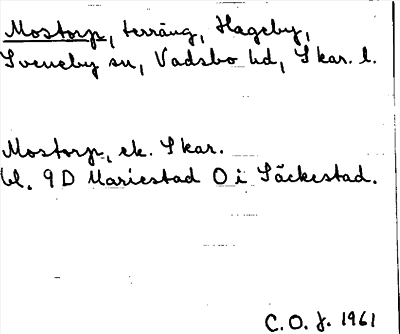 Mostorp, terräng, Hageby,
Sveneby sn, Vadsbo hd, Skar. l.
Mostorp, ek. Skar.
bl. 9D Mariestad O i Säckestad.
C. O. J. 1961